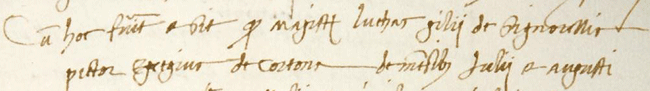 Cu hoc fuit et sit q magistr luchas gilii de Signorellis
pictor egregius de Cortona de mēsibus Julii et augusti